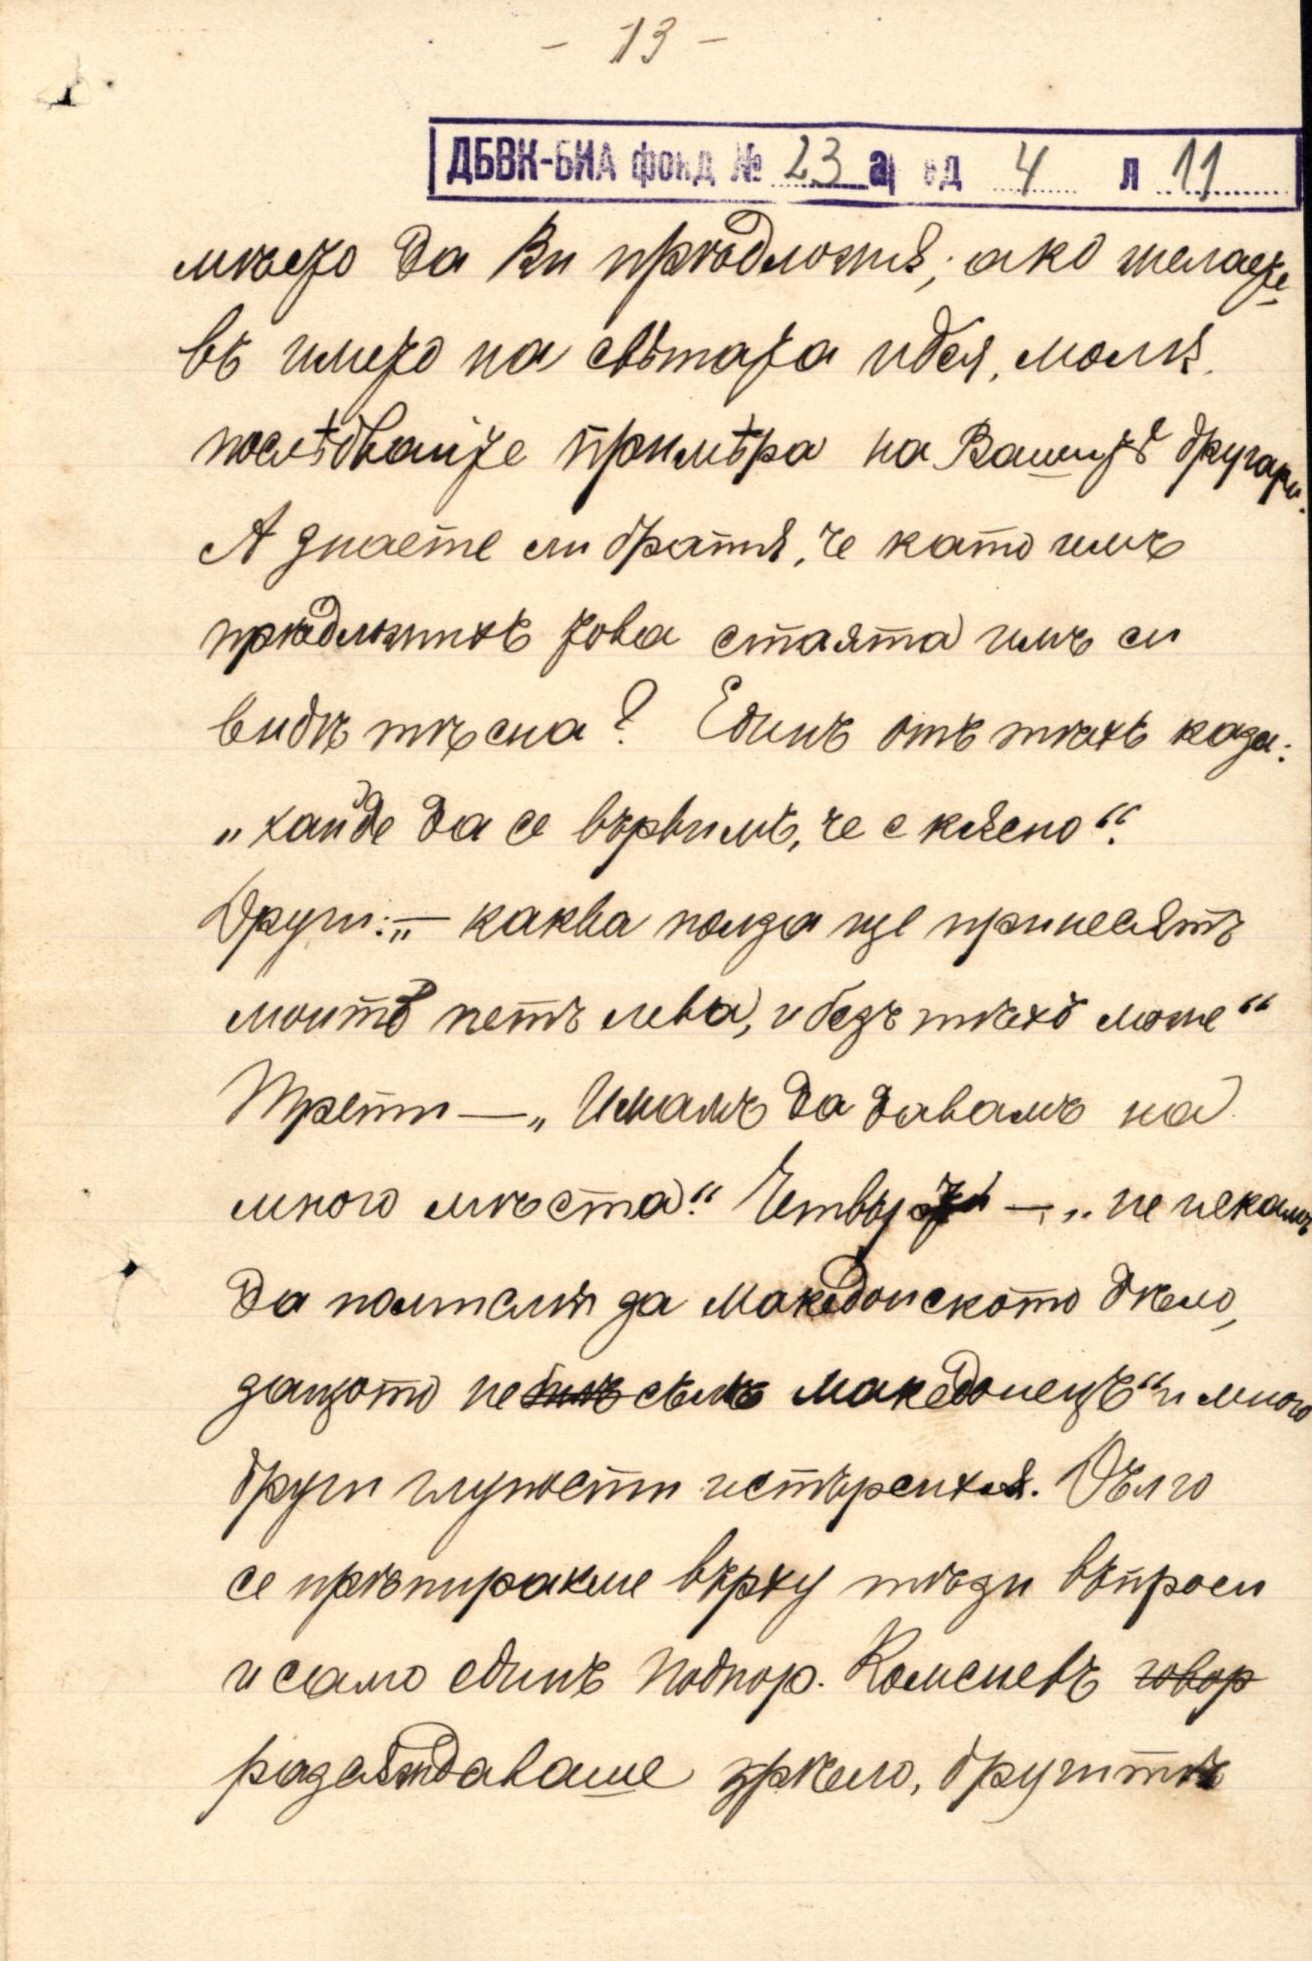 - 13 -
ДБВК-БИА фонд № 23 а ед 4 л 11
мѣето да Ви прѣдложѫ; ако желаете
въ името на свѣтата идея, молѭ,
послѣдвайте примѣра на Вашитѣ другари.
А знаете ли братия, че като имъ
прѣдложихъ това стаята имъ си
видѣ тѣсна? Единъ отъ тѣхъ каза:
„хайде да се вървимъ, че е късно“.
Други: „— каква полза ще принесѫтъ
моитѣ петь лева, и безъ тѣхъ може“
Трети — „Имамъ да давамъ на
много мѣста“. Четвърти — „не искамъ
да помислѭ за Македонското дѣло,
защото не билъ съмъ македонецъ“ и много
други глупости истърсихѫ. Дълго
се прѣпирахме върху тѣзи въпроси
и само единъ подпор. Комсиевъ говор
разсѫждаваше зрѣло, другитѣ